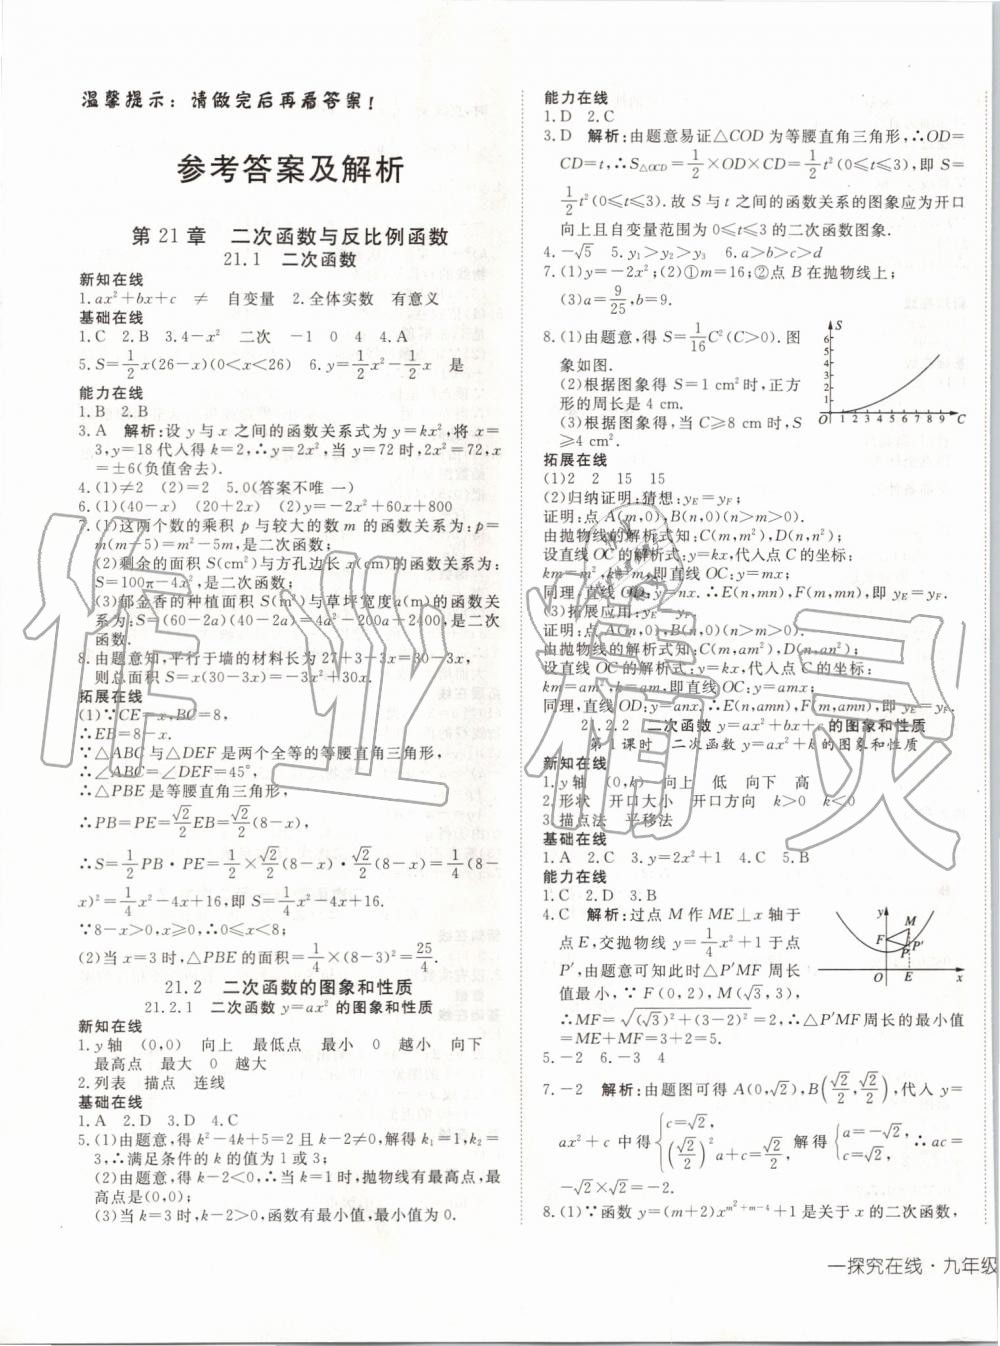 温馨提示:请做完后再看答案!
参考答案及解析
第21章 二次函数与反比例函数
21.1 二次函数
新知在线
1.ax²+bx+c ≠ 自变量 2.全体实数 有意义
基础在线
1.C 2.B 3.4-x² 二次 -1 0 4 4.A
5.S=1/2x(26-x)(0<x<26) 6.y=1/2x²-1/2x 是
能力在线
1.B 2.B
3.A 解析:设 y 与 x 之间的函数关系式为 y=kx²,将 x=
3,y=18代人得 k=2,∴y=2x².当 y=72时,72=2x²,x
=±6(负值舍去).
4.(1)≠2 (2)=2 5.0(答案不唯一)
6.(1)(40-x) (20+2x) (2)y=-2x²+60x+800
7.(1)这两个数的乘积 p 与较大的数 m 的函数关系为:p=
m(m-5)=m²-5m,是二次函数;
(2)剩余的面积 S(cm²)与方孔边长 x(cm)的函数关系为:
S=100π-4x²,是二次函数;
(3)郁金香的种植面积 S(m²)与草坪宽度a(m)的函数关
系为:S=(60-2a)(40-2a)=4a²-200a+2400,是二次
函数.
8.由题意知,平行于墙的材料长为27+3-3x=30-3x,
则总面积 S=x(30-3x)=-3x²+30x.
拓展在线
(1)∵CE=x,BC=8,
∴EB=8-x.
∵△ABC与△DEF是两个全等的等腰直角三角形,
∴∠ABC=∠DEF=45°,
∴△PBE是等腰直角三角形,
∴PB=PE=√2/2EB=√2/2(8-x),
∴S=1/2PB·PE=1/2×√2/2(8-x)·√2/2(8-x)=1/4(8-
x)²=1/4x²-4x+16,即S=1/4x²-4x+16.
∵8-x>0,x≥0,∴0≤x<8;
(2)当x=3时,△PBE的面积=1/4×(8-3)²=25/4.
21.2 二次函数的图象和性质
21.2.1 二次函数y=ax²的图象和性质
新知在线
1.y轴 (0,0) 向上 最低点 最小 0 越小 向下
最高点 最大 0 越大
2.列表 描点 连线
基础在线
1.A 2.D 3.D 4.C
5.(1)由题意,得 k²-4k+5=2且 k≠0,解得k₁=1,k₂=
3,∴满足条件的 k 的值为1或3;
(2)由题意,得k-2<0,∴当k=1时,抛物线有最高点,最
高点是(0,0);
(3)当k=3时,k-2>0,函数有最小值,最小值为0.
能力在线
1.D 2.C
3.D 解析:由题意易证△COD为等腰直角三角形,∴OD=
CD=t,∴S△OCD=1/2×OD×CD=1/2t²(0≤t≤3),即 S=
1/2t²(0≤t≤3).故 S 与 t 之间的函数关系的图象应为开口
向上且自变量范围为0≤t≤3的二次函数图象.
4.-√5 5.y₁>y₂>y₃ 6.a>b>c>d
7.(1)y=-2x²;(2)①m=16;②点B在抛物线上;
(3)a=9/25,b=9.
8.(1)由题意,得S=1/16C²(C>0).图
象如图.
(2)根据图象得 S=1 cm²时,正方
形的周长是4 cm.
(3)根据图象得,当C≥8 cm时,S
≥4 cm².
S
6
5
4
3
2
1
O 1 2 3 4 5 6 7 8 9 C
拓展在线
(1)2 2 15 15
(2)归纳证明:猜想:yE=yF.
证明:点 A(m,0),B(n,0)(n>m>0).
由抛物线的解析式知:C(m,m²),D(n,n²).
设直线 OC的解析式:y=kx,代入点C的坐标:
km=m²,k=m,即直线OC:y=mx;
同理,直线OD:y=nx.∴E(n,mn),F(m,mn),即 yE=yF.
(3)拓展应用:yE=yF.
证明:点 A(m,0),B(n,0)(n>m>0)
由抛物线的解析式知:C(m,am²),D(n,an²).
设直线 OC的解析式:y=kx,代入点C的坐标:
km=am²,k=am,即直线OC:y=amx;
同理,直线OD:y=anx.∴E(n,amn),F(m,amn),即 yE=yF.
21.2.2 二次函数y=ax²+bx+c的图象和性质
第1课时 二次函数y=ax²+k的图象和性质
新知在线
1.y轴 (0,k) 向上 低 向下 高
2.形状 开口大小 开口方向 k>0 k<0
3.描点法 平移法
基础在线
1.A 2.C 3.y=2x²+1 4.C 5.B
能力在线
1.C 2.D 3.B
4.C 解析:过点M作ME⊥x轴于
点E,交抛物线y=1/4x²+1于点
P′,由题意可知此时△P′MF周长
值最小,∵F(0,2),M(√3,3),
∴MF=√((√3)²+(3-2)²)=2,∴△P′MF周长的最小值
=ME+MF=3+2=5.
y
M
F
P′
P
O E x
5.-2 6.-3 4
7.-2 解析:由题图可得A(0,√2),B(√2/2,√2/2),代入y=
ax²+c中得{c=√2,(√2/2)²a+c=√2/2, 解得{a=-√2,c=√2,∴ac=
-√2×√2=-2.
8.(1)∵函数y=(m+2)x^(m²+m-4)+1是关于x的二次函数,
一探究在线·九年级
作业精灵